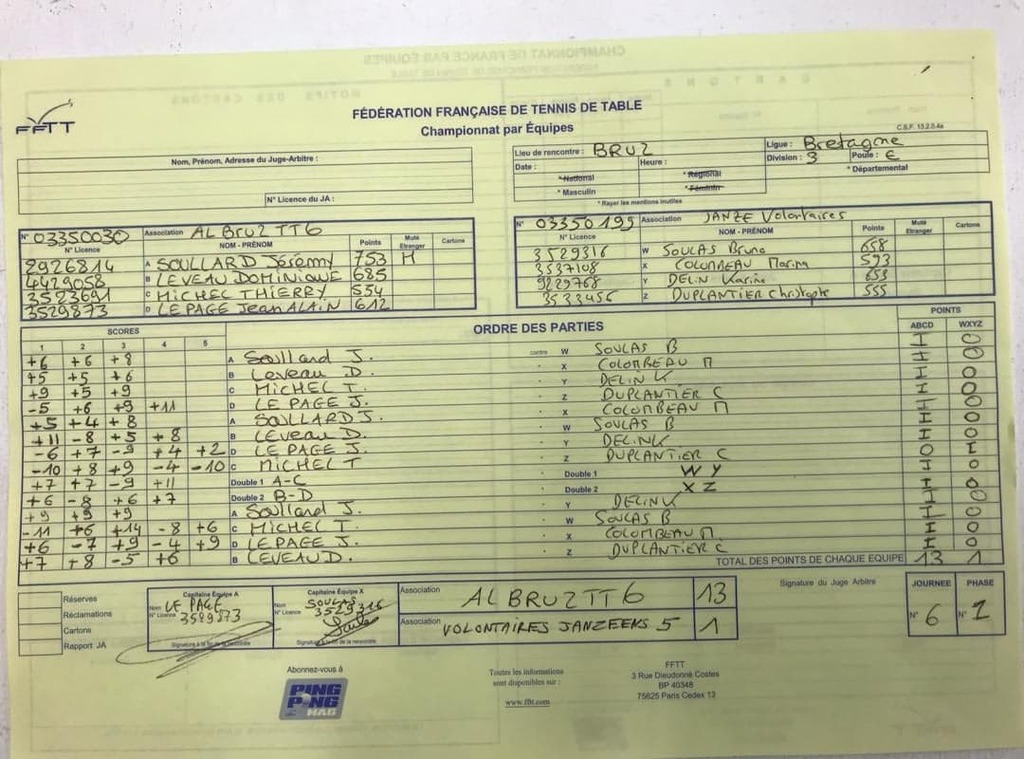 FFTT
FÉDÉRATION FRANÇAISE DE TENNIS DE TABLE
Championnat par Équipes
C.S.F. 13.2.0.4a
Nom, Prénom, Adresse du Juge-Arbitre :
N° Licence du JA :
Lieu de rencontre : BRUZ
Ligue : Bretagne
Date :
Heure :
Division : 3
Poule : E
* National
* Régional
* Départemental
* Masculin
* Féminin
* Rayer les mentions inutiles
N° 03350030 Association AL BRUZ TT6
N° Licence NOM - PRÉNOM Points Muté Etranger Cartons
2926814 A SOULLARD Jérémy 753 M
4429058 B LEVEAU DOMINIQUE 685
3523691 C MICHEL THIERRY 554
3529873 D LE PAGE Jean ALAIN 612
N° 03350199 Association JANZE Volontaires
N° Licence NOM - PRÉNOM Points Muté Etranger Cartons
3529316 W SOULAS Bruno 658
3537108 X COLOMBEAU Marina 593
9229768 Y DELIN Karine 653
3533456 Z DUPLANTIER Christophe 555
SCORES
ORDRE DES PARTIES
POINTS
1 2 3 4 5
ABCD WXYZ
+6 +6 +8 A Soullard J. contre W SOULAS B I O
+5 +5 +6 B Leveau D. X COLOMBEAU M I O
+9 +5 +9 C MICHEL T. Y DELIN K I O
-5 +6 +9 +11 D LE PAGE J. Z DUPLANTIER C I O
+5 +4 +8 A SOULLARD J. X COLOMBEAU M I O
+11 -8 +5 +8 B LEVEAU D. W SOULAS B I O
-6 +7 -9 +4 +2 D LE PAGE J. Y DELIN K I O
-10 +8 +9 -4 -10 C MICHEL T Z DUPLANTIER C O I
+7 +7 -9 +11 Double 1 A-C Double 1 W Y I O
+6 -8 +6 +7 Double 2 B-D Double 2 X Z I O
+9 +9 +9 A Soullard J. Y DELIN K I O
-11 +6 +14 -8 +6 C MICHEL T. W SOULAS B I O
+6 -7 +9 -4 +9 D LE PAGE J. X COLOMBEAU M I O
+7 +8 -5 +6 B LEVEAU D. Z DUPLANTIER C I O
TOTAL DES POINTS DE CHAQUE EQUIPE 13 1
Réserves
Réclamations
Cartons
Rapport JA
Capitaine Équipe A
Nom LE PAGE
N° Licence 3589873
Signature à la fin de la rencontre
Capitaine Équipe X
Nom SOULAS
N° Licence 3529316
Signature à la fin de la rencontre
Association AL BRUZ TT 6 13
Association VOLONTAIRES JANZEENS 5 1
Signature du Juge Arbitre
JOURNEE PHASE
N° 6 N° 1
Abonnez-vous à
PING PONG MAG
Toutes les informations
sont disponibles sur :
www.fftt.com
FFTT
3 Rue Dieudonné Costes
BP 40348
75625 Paris Cedex 13